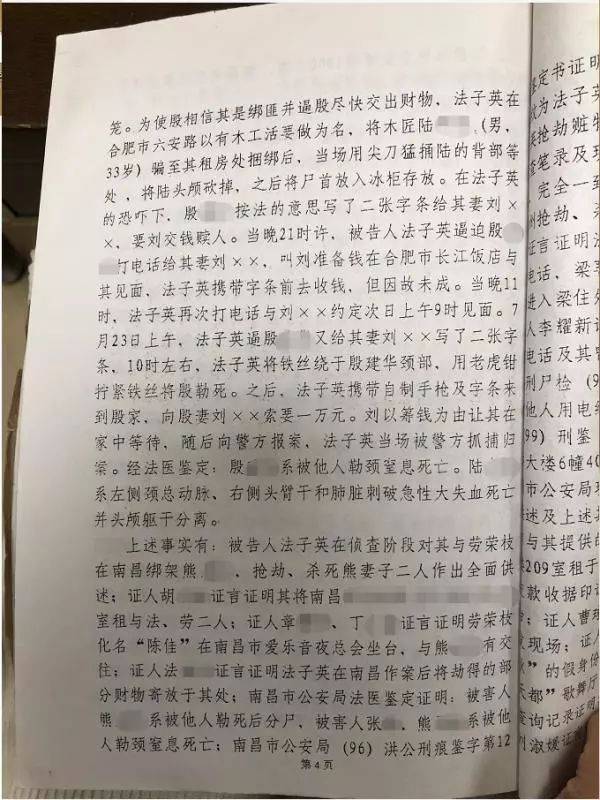 笼。为使殷相信其是绑匪并逼殷尽快交出财物，法子英在
合肥市六安路以有木工活要做为名，将木匠陆（男，
33岁）骗至其租房处捆绑后，当场用尖刀猛捅陆的背部等
处，将陆头颅砍掉，之后将尸首放入冰柜存放。在法子英
的恐吓下，殷按法的意思写了二张字条给其妻刘×
×，要刘交钱赎人。当晚21时许，被告人法子英逼迫殷
打电话给其妻刘××，叫刘准备钱在合肥市长江饭店与
其见面，法子英携带字条前去收钱，但因故未成。当晚11
时，法子英再次打电话与刘××约定次日上午9时见面。7
月23日上午，法子英逼殷又给其妻刘××写了二张字
条，10时左右，法子英将铁丝绕于殷建华颈部，用老虎钳
拧紧铁丝将殷勒死。之后，法子英携带自制手枪及字条来
到殷家，向殷妻刘××索要一万元。刘以筹钱为由让其在
家中等待，随后向警方报案，法子英当场被警方抓捕归
案。经法医鉴定：殷系被他人勒颈窒息死亡。陆
系左侧颈总动脉、右侧头臂干和肺脏刺破急性大失血死亡
并头颅躯干分离。
上述事实有：被告人法子英在侦查阶段对其与劳荣枝
在南昌绑架熊、抢劫、杀死熊妻子二人作出全面供
述；证人胡证言证明其将南昌
室租与法、劳二人；证人章、丁证言证明劳荣枝
化名“陈佳”在南昌市爱乐音夜总会坐台，与熊有交
往；证人法证言证明法子英在南昌作案后将劫得的部
分财物寄放于其处；南昌市公安局法医鉴定证明：被害人
熊系被他人勒死后分尸，被害人张、熊系被他
人勒颈窒息死亡；南昌市公安局（96）洪公刑痕鉴字第12
第4页
鉴定书证明
为法子英
抢劫赃物
查笔录及现
完全一到
州抢劫、
证言证明法
电话，梁
进入梁住处
人李耀新证
电话及其
刑尸检（9
他人用电线
99）刑鉴
大楼6幢40
市公安局
述及上述
与其提供的
209室租于
款收据印证
；证人曹
现场；证
”的假身份
都”歌舞厅
查询记录证明
刘淑媛证